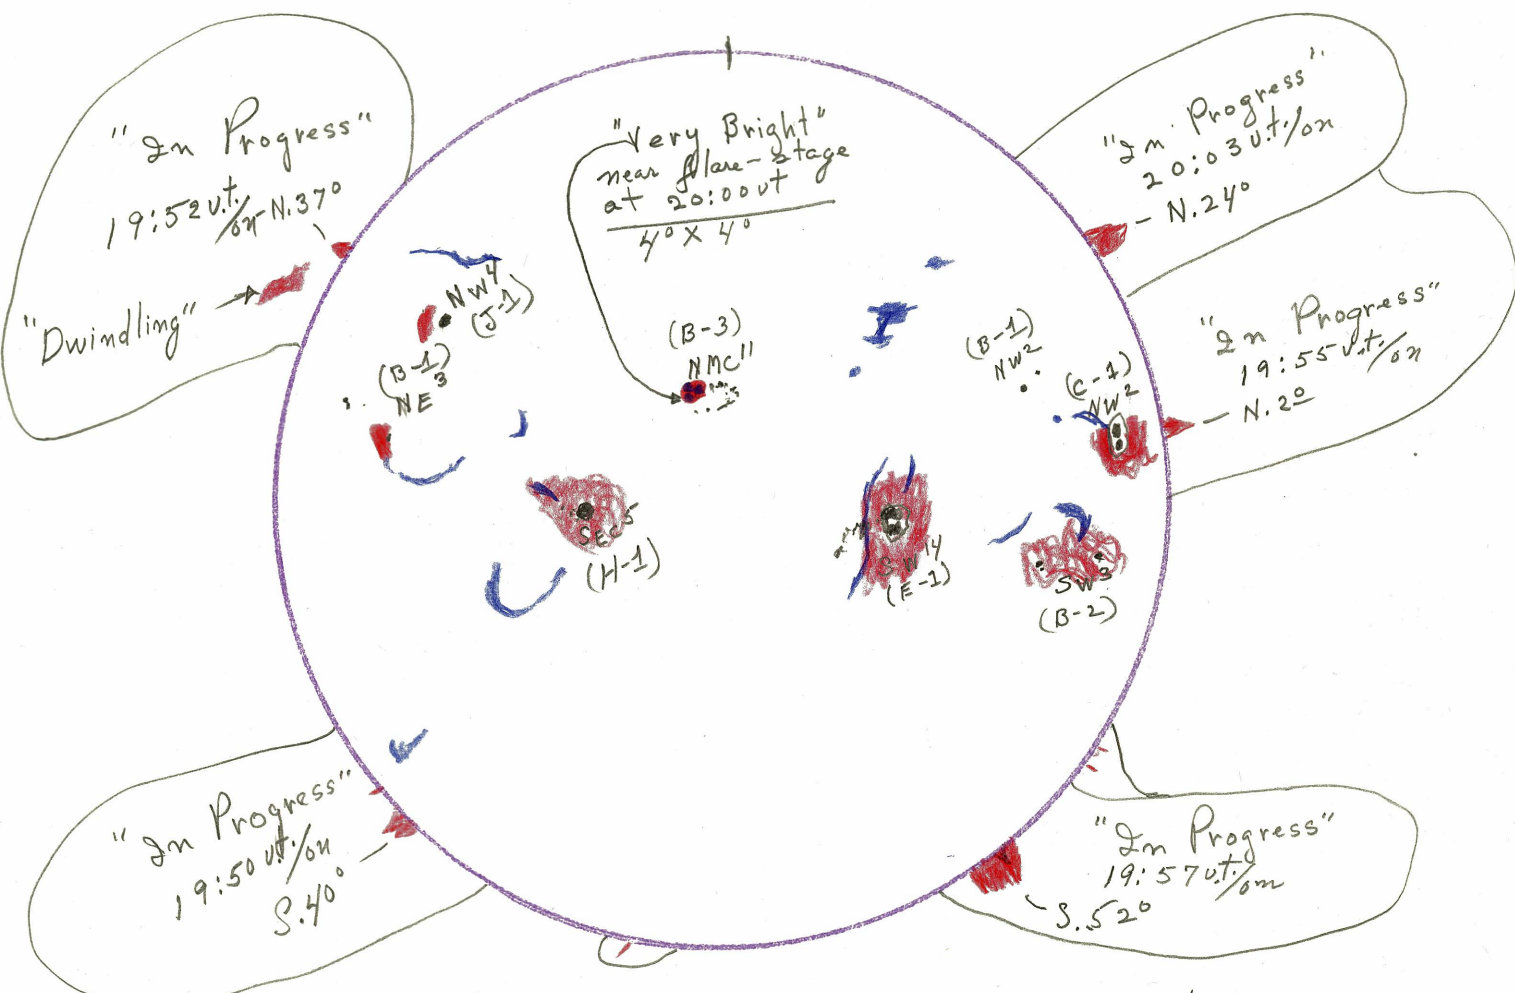 "In Progress"
19:52 u.t./on-N.37°
"Dwindling"
"Very Bright"
near flare-stage
at 20:00 ut
4° X 4°
"In Progress"
20:03 u.t./on
N.24°
"In Progress"
19:55 u.t./on
N.2°
NW4
(J-1)
(B-1)
NE3
(B-3)
NMC11
(B-1)
NW2
(C-1)
NW2
SEC5
(H-1)
SW14
(E-1)
SW3
(B-2)
"In Progress"
19:50 u.t./on
S.40°
"In Progress"
19:57 u.t./on
S.52°